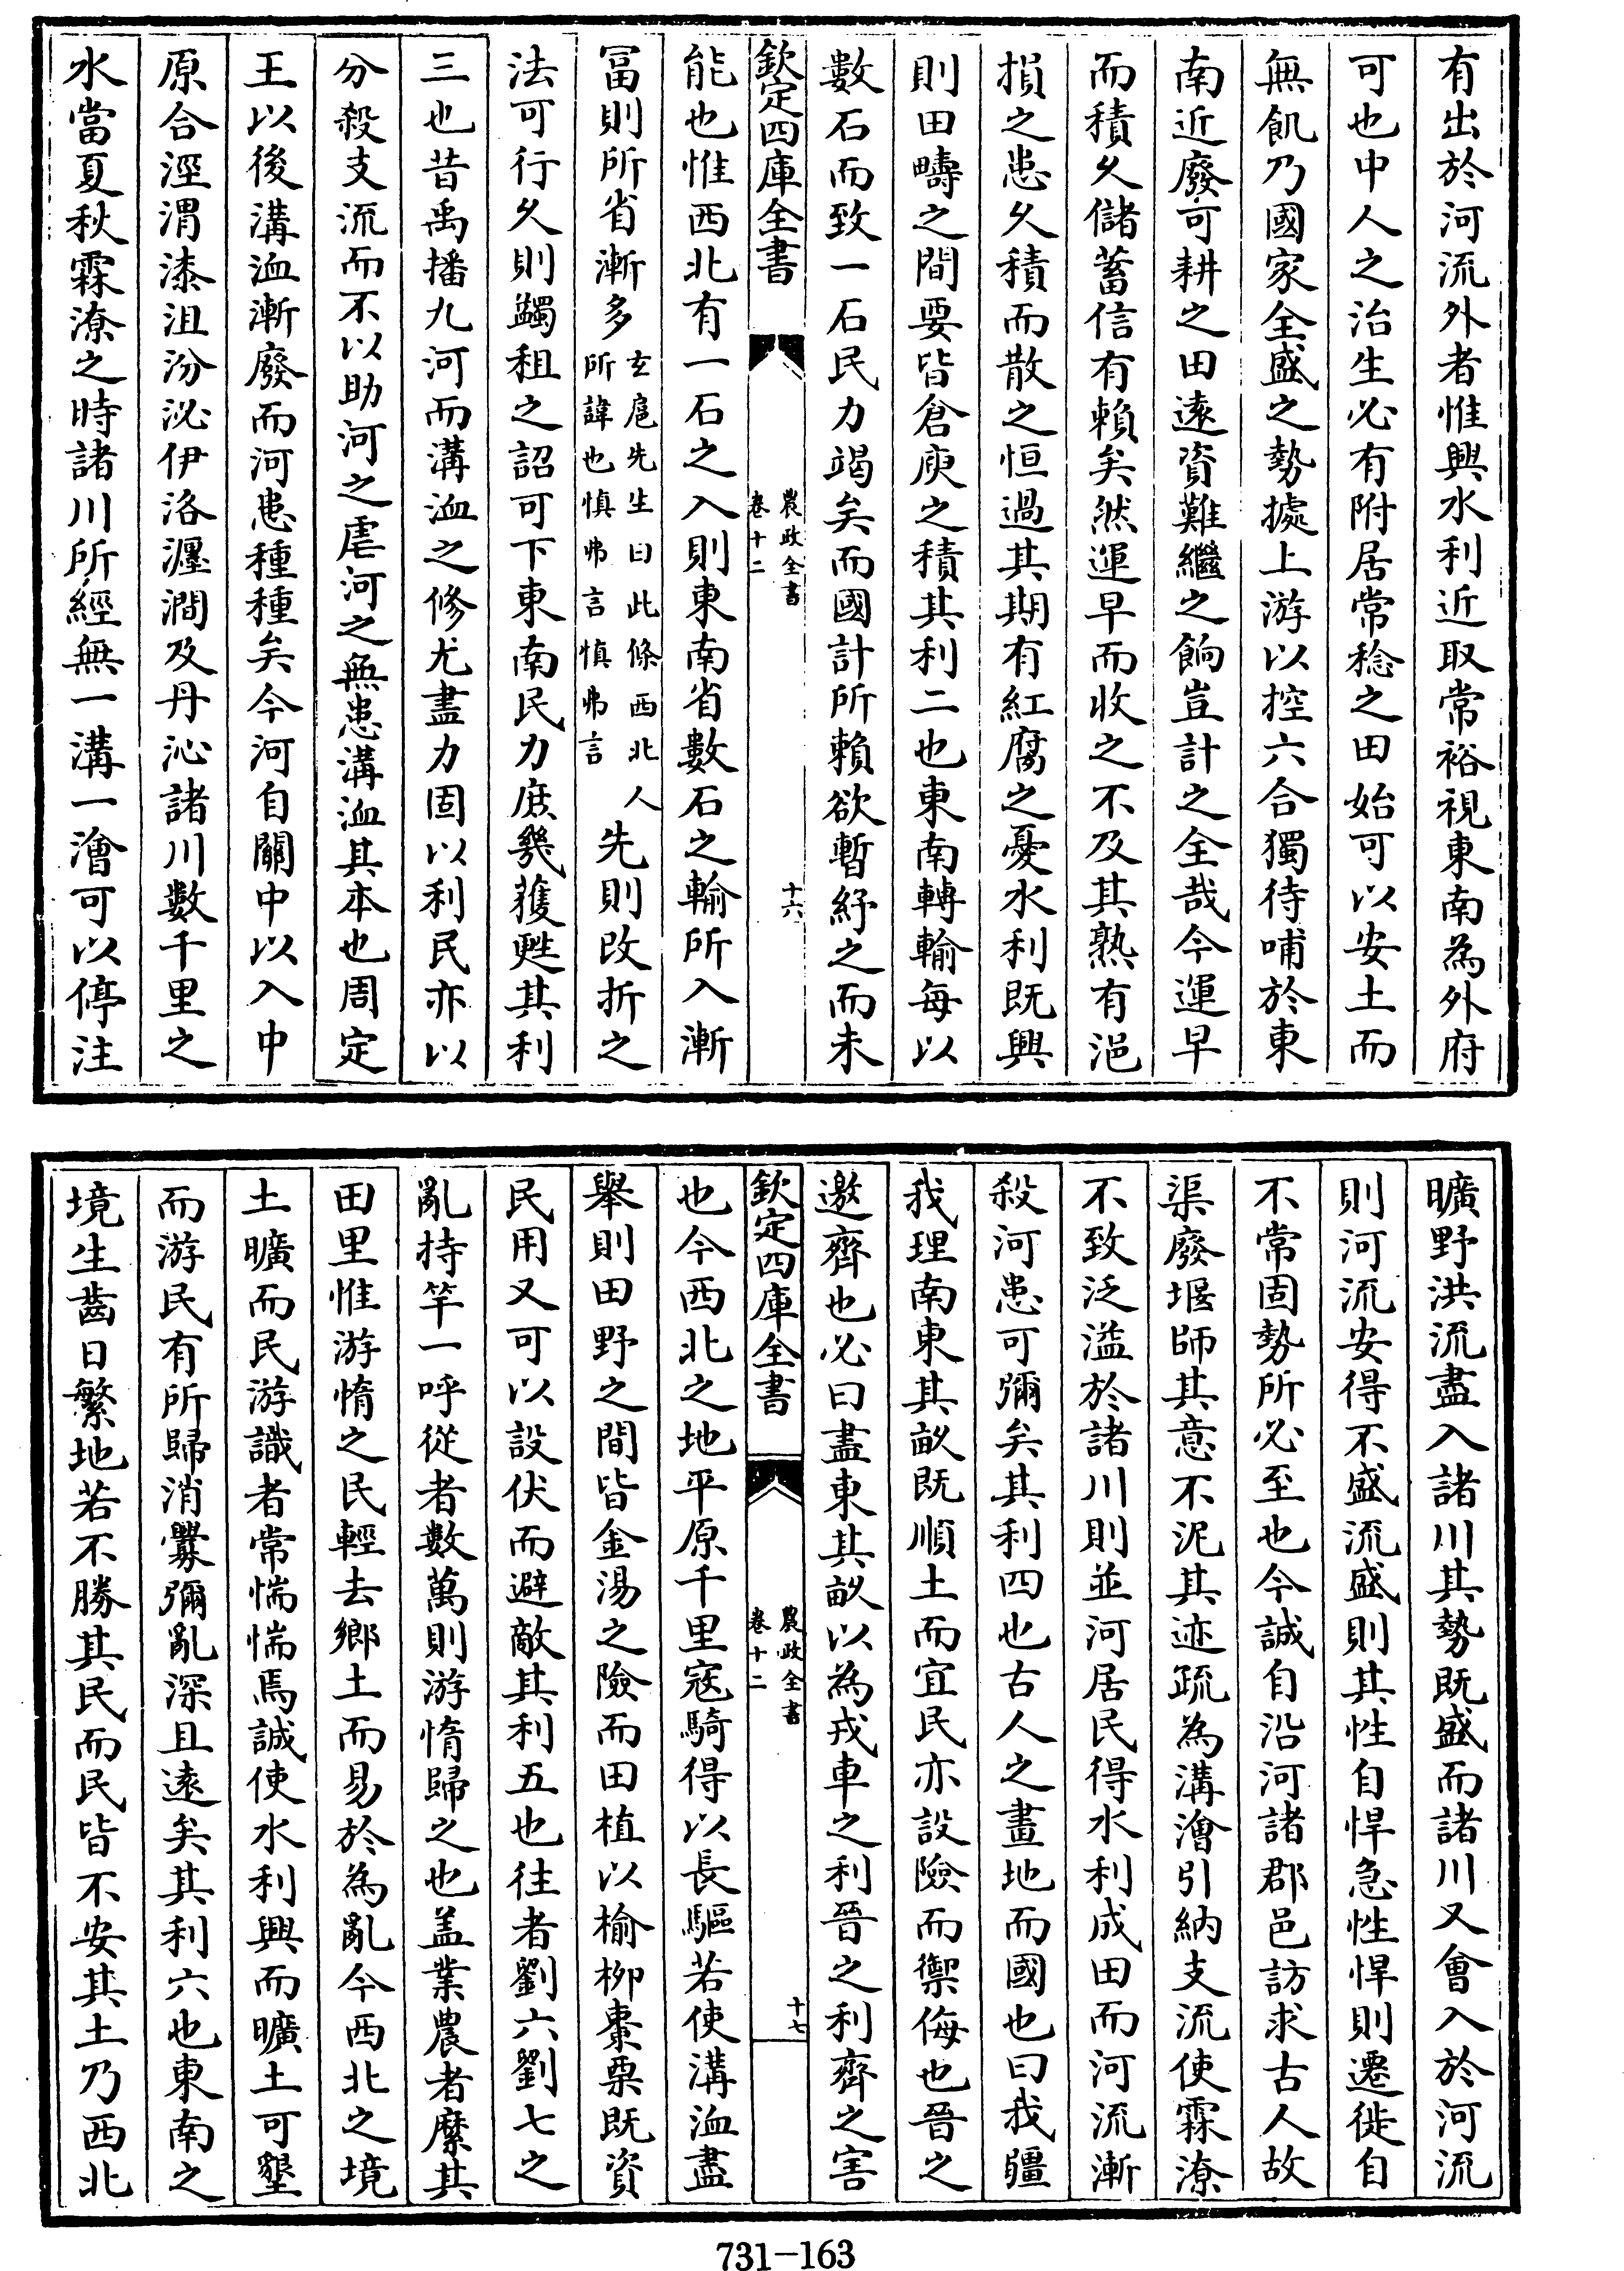 有出於河流外者惟興水利近取常裕視東南為外府
可也中人之治生必有附居常稔之田始可以安土而
無飢乃國家全盛之勢據上游以控六合獨待哺於東
南近廢可耕之田遠資難繼之餉豈計之全哉今運早
而積久儲蓄信有賴矣然運早而收之不及其熟有浥
損之患久積而散之恒過其期有紅腐之憂水利既興
則田疇之間要皆倉庾之積其利二也東南轉輸每以
數石而致一石民力竭矣而國計所賴欲暫紓之而未
欽定四庫全書
農政全書
卷十二
十六
能也惟西北有一石之入則東南省數石之輸所入漸
富則所省漸多
玄扈先生曰此條西北人
所諱也慎弗言慎弗言
先則改折之
法可行久則蠲租之詔可下東南民力庶幾獲甦其利
三也昔禹播九河而溝洫之修尤盡力固以利民亦以
分殺支流而不以助河之虐河之無患溝洫其本也周定
王以後溝洫漸廢而河患種種矣今河自關中以入中
原合涇渭漆沮汾泌伊洛瀍澗及丹沁諸川數千里之
水當夏秋霖潦之時諸川所經無一溝一澮可以停注
曠野洪流盡入諸川其勢既盛而諸川又會入於河流
則河流安得不盛流盛則其性自悍急性悍則遷徙自
不常固勢所必至也今誠自沿河諸郡邑訪求古人故
渠廢堰師其意不泥其迹疏為溝澮引納支流使霖潦
不致泛溢於諸川則並河居民得水利成田而河流漸
殺河患可彌矣其利四也古人之畫地而國也曰我疆
我理南東其畝既順土而宜民亦設險而禦侮也晉之
邀齊也必曰盡東其畝以為戎車之利晉之利齊之害
欽定四庫全書
農政全書
卷十二
十七
也今西北之地平原千里寇騎得以長驅若使溝洫盡
舉則田野之間皆金湯之險而田植以榆柳棗栗既資
民用又可以設伏而避敵其利五也往者劉六劉七之
亂持竿一呼從者數萬則游惰歸之也盖業農者縻其
田里惟游惰之民輕去鄉土而易於為亂今西北之境
土曠而民游識者常惴惴焉誠使水利興而曠土可墾
而游民有所歸消釁彌亂深且遠矣其利六也東南之
境生齒日繁地若不勝其民而民皆不安其土乃西北
731-163